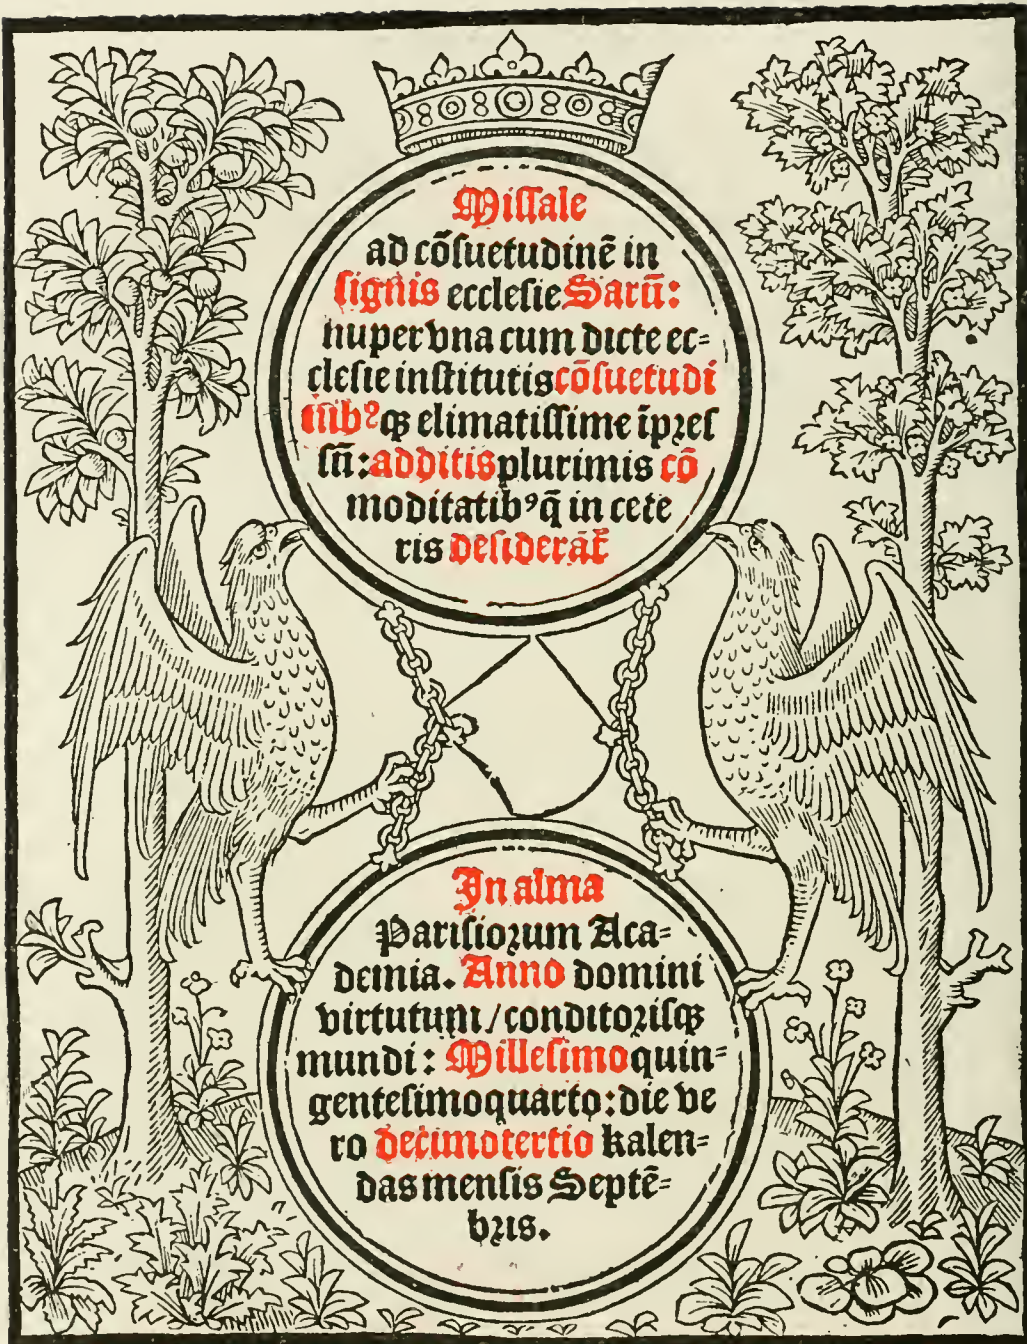 Miſſale
ad cõſuetudinẽ in
ſignis eccleſie Sarũ:
nuper vna cum dicte ec=
cleſie inſtitutis cõſuetudi
nib⁹qꝫ elimatiſſime ĩpꝛeſ
ſũ: additis plurimis cõ
moditatib⁹ q̃ in cete
ris deſiderãt̃
In alma
Pariſioꝛum Aca=
demia. Anno domini
virtutum/conditoꝛiſqꝫ
mundi: Milleſimo quin=
genteſimoquarto: die ve
ro decimotertio kalen=
das menſis Septẽ=
bꝛis.